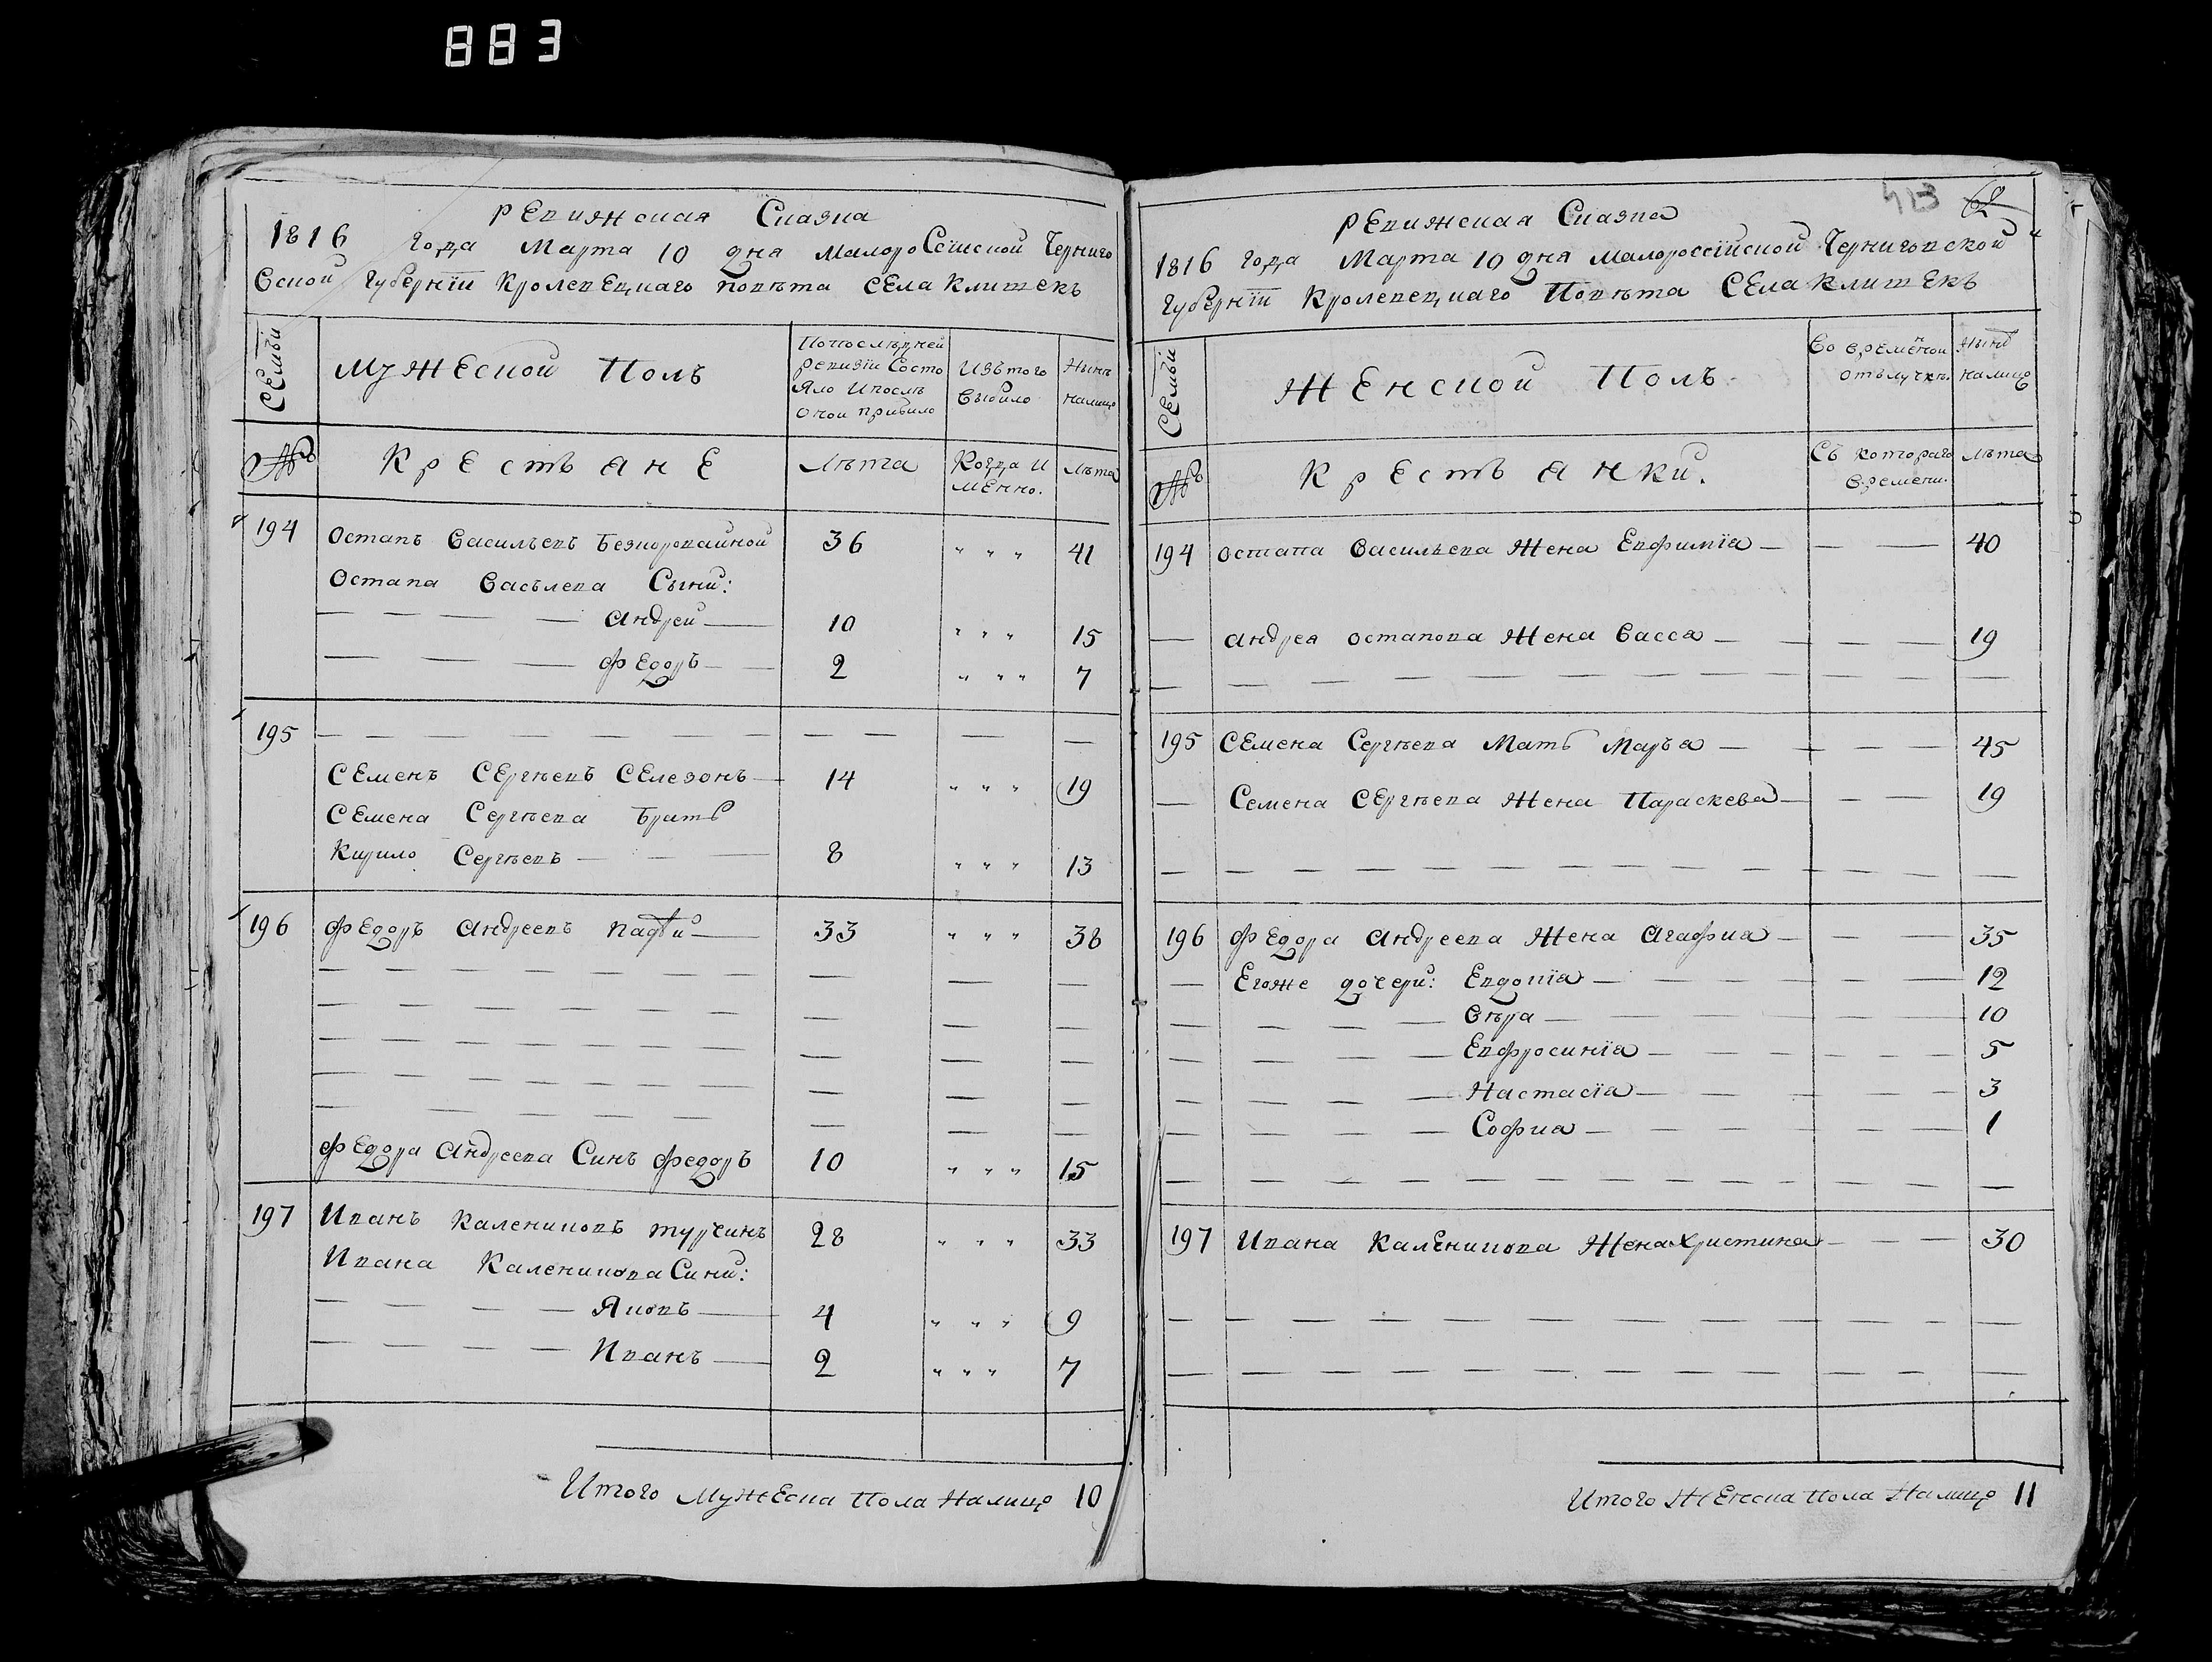 883
РЕвижская Сказка
1816 года Марта 10 дня Малороссійской Черниго
вской Губернїи Кролевецкаго повѣта СЕла клишекъ
СЕмьи
МужЕской Полъ
Попослѣдней
ревизїи Состо
яло Ипослѣ
оной прибило
Изътого
выбило
Нынѣ
налицо
№
КрЕстьянЕ
Лѣта
Когда И
мЕнно.
Лѣта
194 Остапъ Васильевъ Безкоровайной 36 " " " 41
Остапа Васълева Сыни:
— — — Андрей — 10 " " " 15
— — — ФЕдоръ — — 2 " " " 7
195 — — — — — — — — — — —
СЕменъ СЕргѣевъ СЕлезонъ — 14 " " " 19
СЕмена Сергѣева Братъ
Кирило Сергѣевъ — — — 8 " " " 13
196 ФЕдоръ Андреевъ — 33 " " " 38
ФЕдора Андреева Синъ Федоръ 10 " " " 15
197 Иванъ Калениковъ турчинъ 28 " " " 33
Ивана Каленикова Сини:
— — — — Яковъ — 4 " " " 9
— — — — Иванъ — 2 " " " 7
Итого МужЕска Пола Налицо 10
413
РЕвижская Сказка
1816 года Марта 10 дня Малороссійской Черниговской
Губернїи Кролевецкаго Повѣта СЕла клишЕкъ
СЕмьи
ЖЕнской Полъ
Во врЕмЕнной
отълучкѣ.
Нынѣ
налицо
№
КрЕстьянки.
Съ котораго
времени.
Лѣта
194 Остапа Васильева Жена Евфимїа — — — 40
— Андреа Остапова Жена Васса — — — — 19
— — — — — — — — — — — — —
195 СЕмена Сергѣева Мать Марья — — — — 45
— Семена СЕргѣева Жена Параскева — — — 19
— — — — — — — — — — — — —
196 ФЕдора Андреева Жена Агафиа — — — 35
— Егоже дочери: Евдокїа — — — — 12
— — — — Вѣра — — — — — 10
— — — — Евфросинїа — — — — — 5
— — — — Настасїа — — — — — 3
— — — — Софиа — — — — — 1
— — — — — — — — — — — — —
197 Ивана КалЕникова Жена Христина — — — 30
— — — — — — — — — — — — —
— — — — — — — — — — — — —
Итого ЖЕнска пола Налицо 11